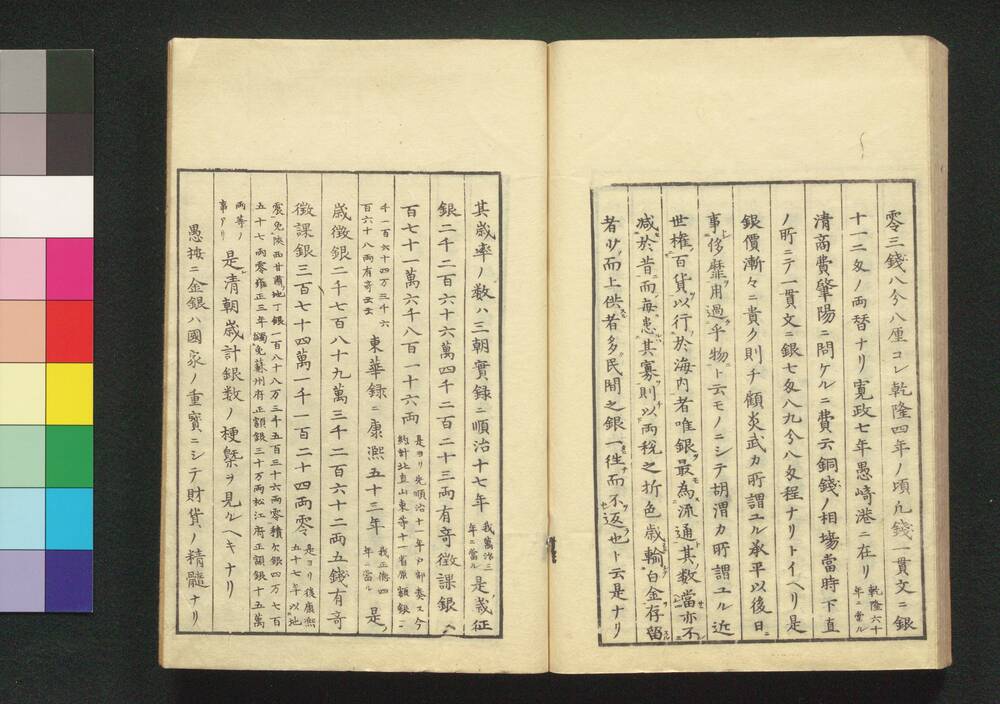 零三錢八分八厘コレ乾隆四年ノ頃凡錢一貫文ニ銀
十一二匁ノ両替ナリ寛政七年愚﨑港ニ在リ乾隆六十年ニ當ル
清商費肇陽ニ問ケルニ費云銅錢ノ相場當時下直
ノ所ニテ一貫文ニ銀七匁八九分八匁程ナリトイヘリ是
銀價漸々ニ貴ク則チ顧炎武カ所謂ユル承平以後日ニ
事侈靡用過乎物ト云モノニシテ胡渭カ所謂ユル近
世権百貨以行於海内者唯銀最為流通其数當亦不
减於昔而毎患其寡則以両税之折色歳輸白金存留
者少而上供者多民間之銀一徃而不返也ト云是ナリ
其歳率ノ数ハ三朝實録ニ順治十七年我萬治三年ニ當ル是歳征
銀二千二百六十六萬四千二百二十三両有奇徴課銀ハ
百七十一萬六千八百一十六両是ヨリ先順治十一年户部奏ス今約計北直山東等十一省原額銀ニ
千一百六十四万三千六百六十八両有奇云云東華録ニ康熙五十三年我正德四年ニ當ル是
歳徴銀二千七百八十九萬三千二百六十二両五錢有奇
徴課銀三百七十四萬一千一百二十四両零是ヨリ後康熙五十七年以地
震免陝西甘肅地丁銀一百八十八万三千五百三十六両零積欠銀四万七百
五十七両零雍正三年蠲免蘇州府正額銀三十万両松江府正額銀十五萬
両等ノ事アリ是清朝歳計銀数ノ梗槩ヲ見ルヘキナリ
愚按ニ金銀ハ國家ノ重寳ニシテ財貨ノ精髓ナリ